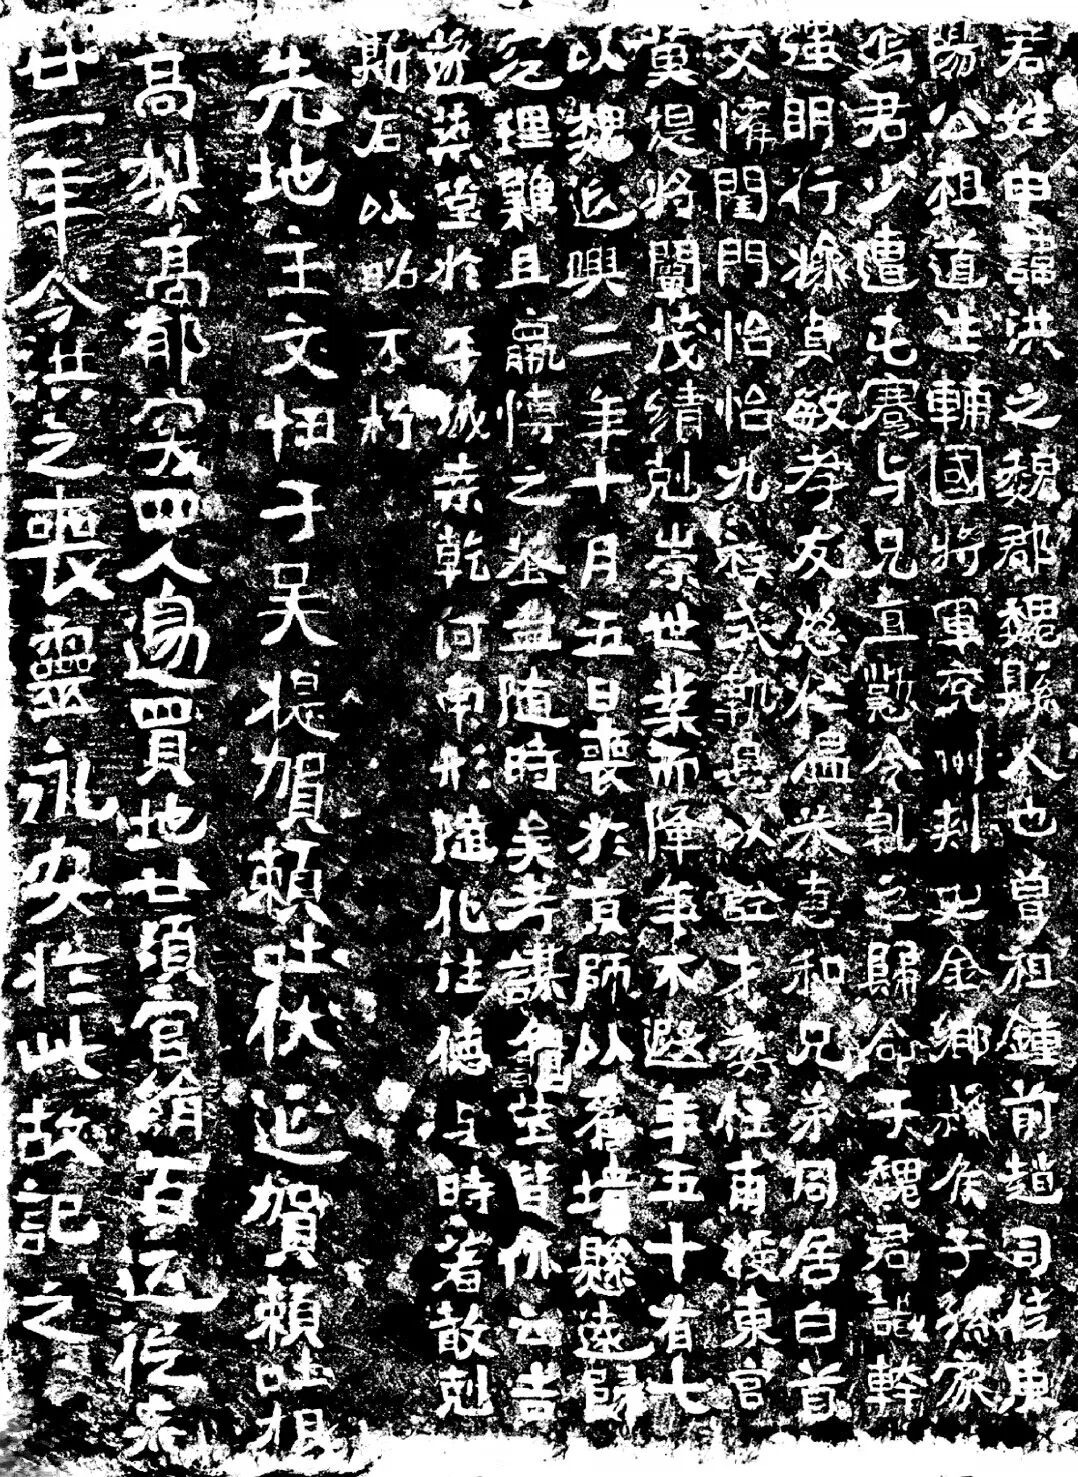 君姓申諱洪之魏郡魏縣人也曾祖鍾前趙司徒東
陽公祖道生輔國將軍兗州刺史金鄉縣侯子孫家
焉君少遭屯蹇与兄直懃令乹之歸命于魏君識幹
强明行操貞敏孝友慈仁温恭惠和兄弟同居白首
交懽閨門怡怡九族式軌是以詮才委任甫授東宮
莫堤將闡茂績剋崇世業而降年不遐年五十有七
以魏延興二年十月五日喪於京師以舊墳懸遠歸
窆理難且羸博之葬盖随時矣考謀龜筮皆休云吉
遂築堂於平城桒乾河南形隨化往德与時著敢剋
斯石以昭不朽
先地主文忸于吴提賀賴吐伏延賀賴吐根
高梨高郁突四人邊買地廿頃官絹百匹從来
廿一年今洪之喪靈永安於此故記之